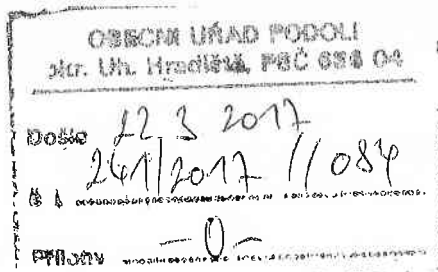 OBECNÍ ÚŘAD PODOLÍ
okr. Uh. Hradiště, PSČ 686 04
Došlo 22 3 2017
Č. j. 241/2017 //084
Přílohy —0—